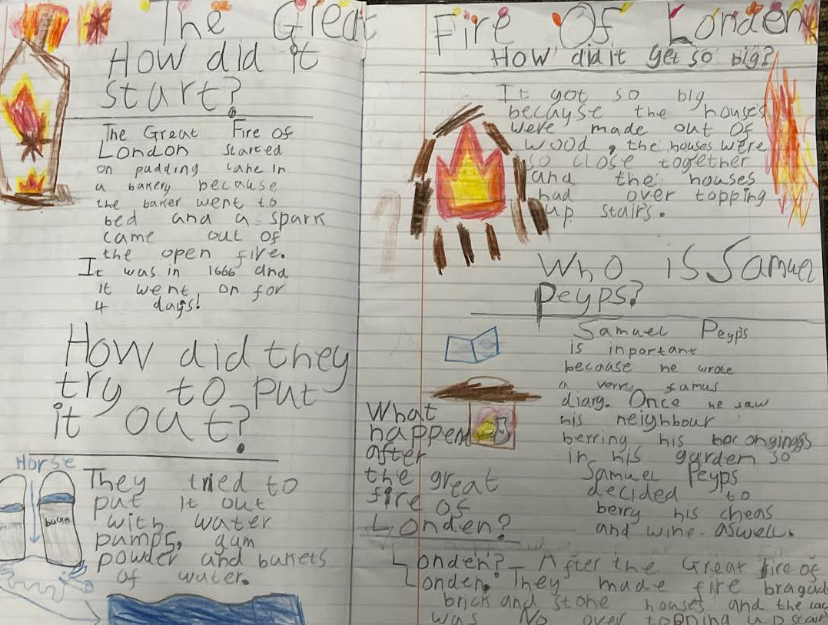 The Great Fire Of Londen
How did it
start?
The Great Fire of
London started
on pudding Lane in
a bakery because
the baker went to
bed and a spark
came out of
the open fire.
It was in 1666 and
it went on for
4 days!
How did they
try to put
it out?
Horse
They tried to
put it out
with water
pumps, gun
powder and bukets
of water.
How did it get so big?
It got so big
becuayse the houses
were made out of
wood, the houses were
so close together
and the houses
had over topping
up stairs.
Who is Samuel
Peyps?
Samuel Peyps
is inportant
because he wrote
a verre famus
diary. Once he saw
his neighbour
berring his
in his garden so
Samuel Peyps
decided to
berry his cheas
and wine aswell.
What
happend
after
the great
fire of
Londen?
Londen? - After the Great fire of
Londen. They made fire bragad
brick and stone houses and the
was No over topping up stair